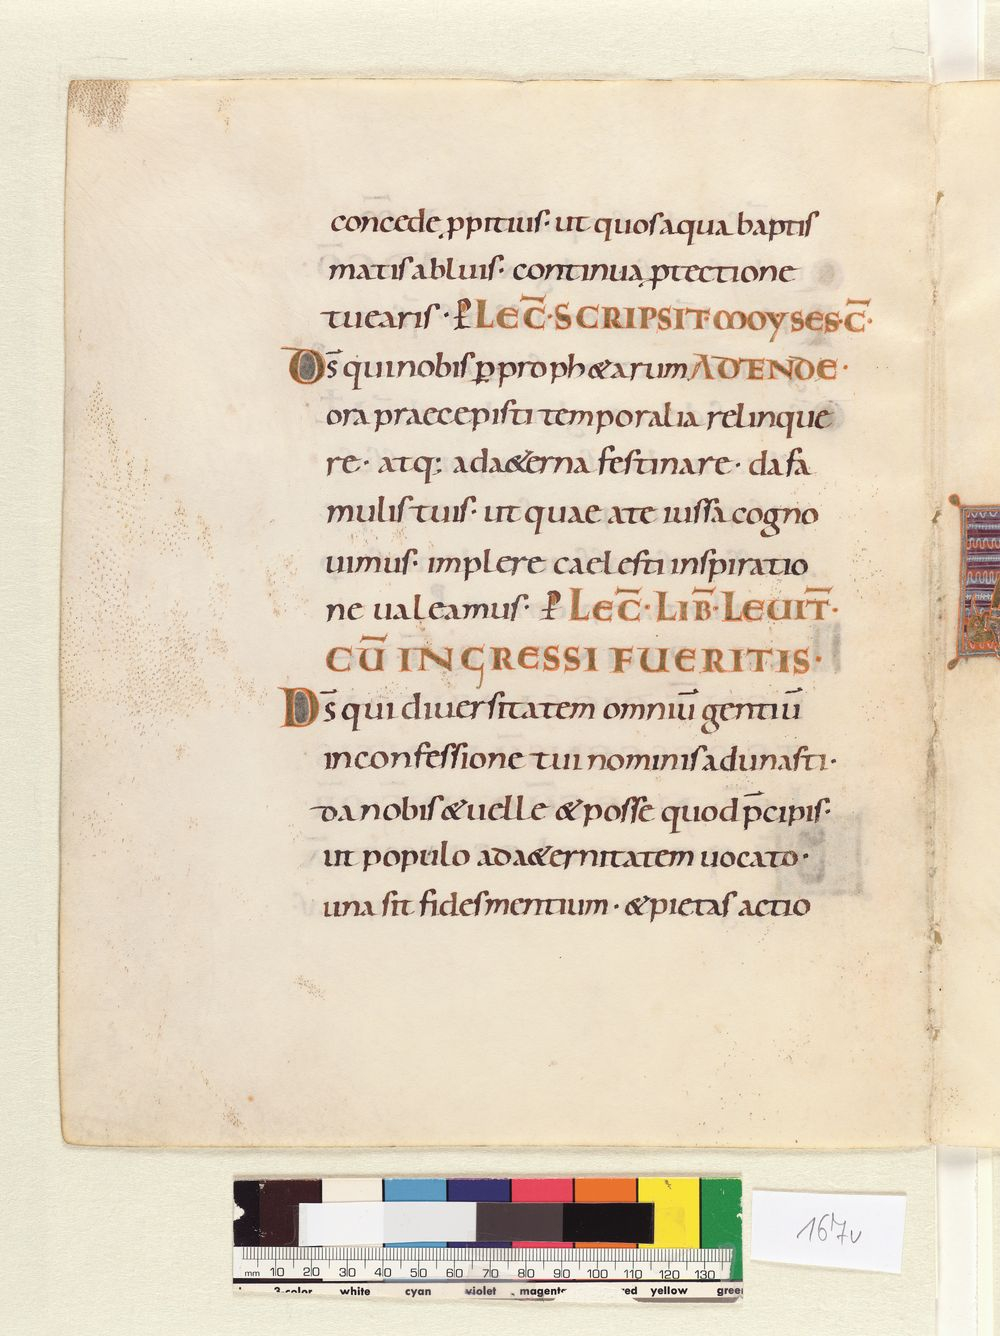 concede ꝓpitius· ut quos aqua baptis
matis abluis· continua ꝓtectione
tuearis· P̄ LEC̄· SCRIPSIT MOYSES· C̄·
Ds̄ qui nobis ꝑ prophetarum ADTENDE·
ora praecepisti temporalia relinque
re· atq; ad aeterna festinare· da fa
mulis tuis· ut quae a te iussa cogno
uimus· implere caelesti inspiratio
ne ualeamus· P̄ LEC̄· LIB̄· LEUIT̄·
CŪ INGRESSI FUERITIS·
Ds̄ qui diuersitatem omniū gentiū
in confessione tui nominis adunasti·
da nobis & uelle & posse quod p̄cipis·
ut populo ad aeternitatem uocato·
una sit fides mentium· & pietas actio
167v
mm 10 20 30 40 50 60 70 80 90 100 110 120 130
3-color white cyan violet magent red yellow green